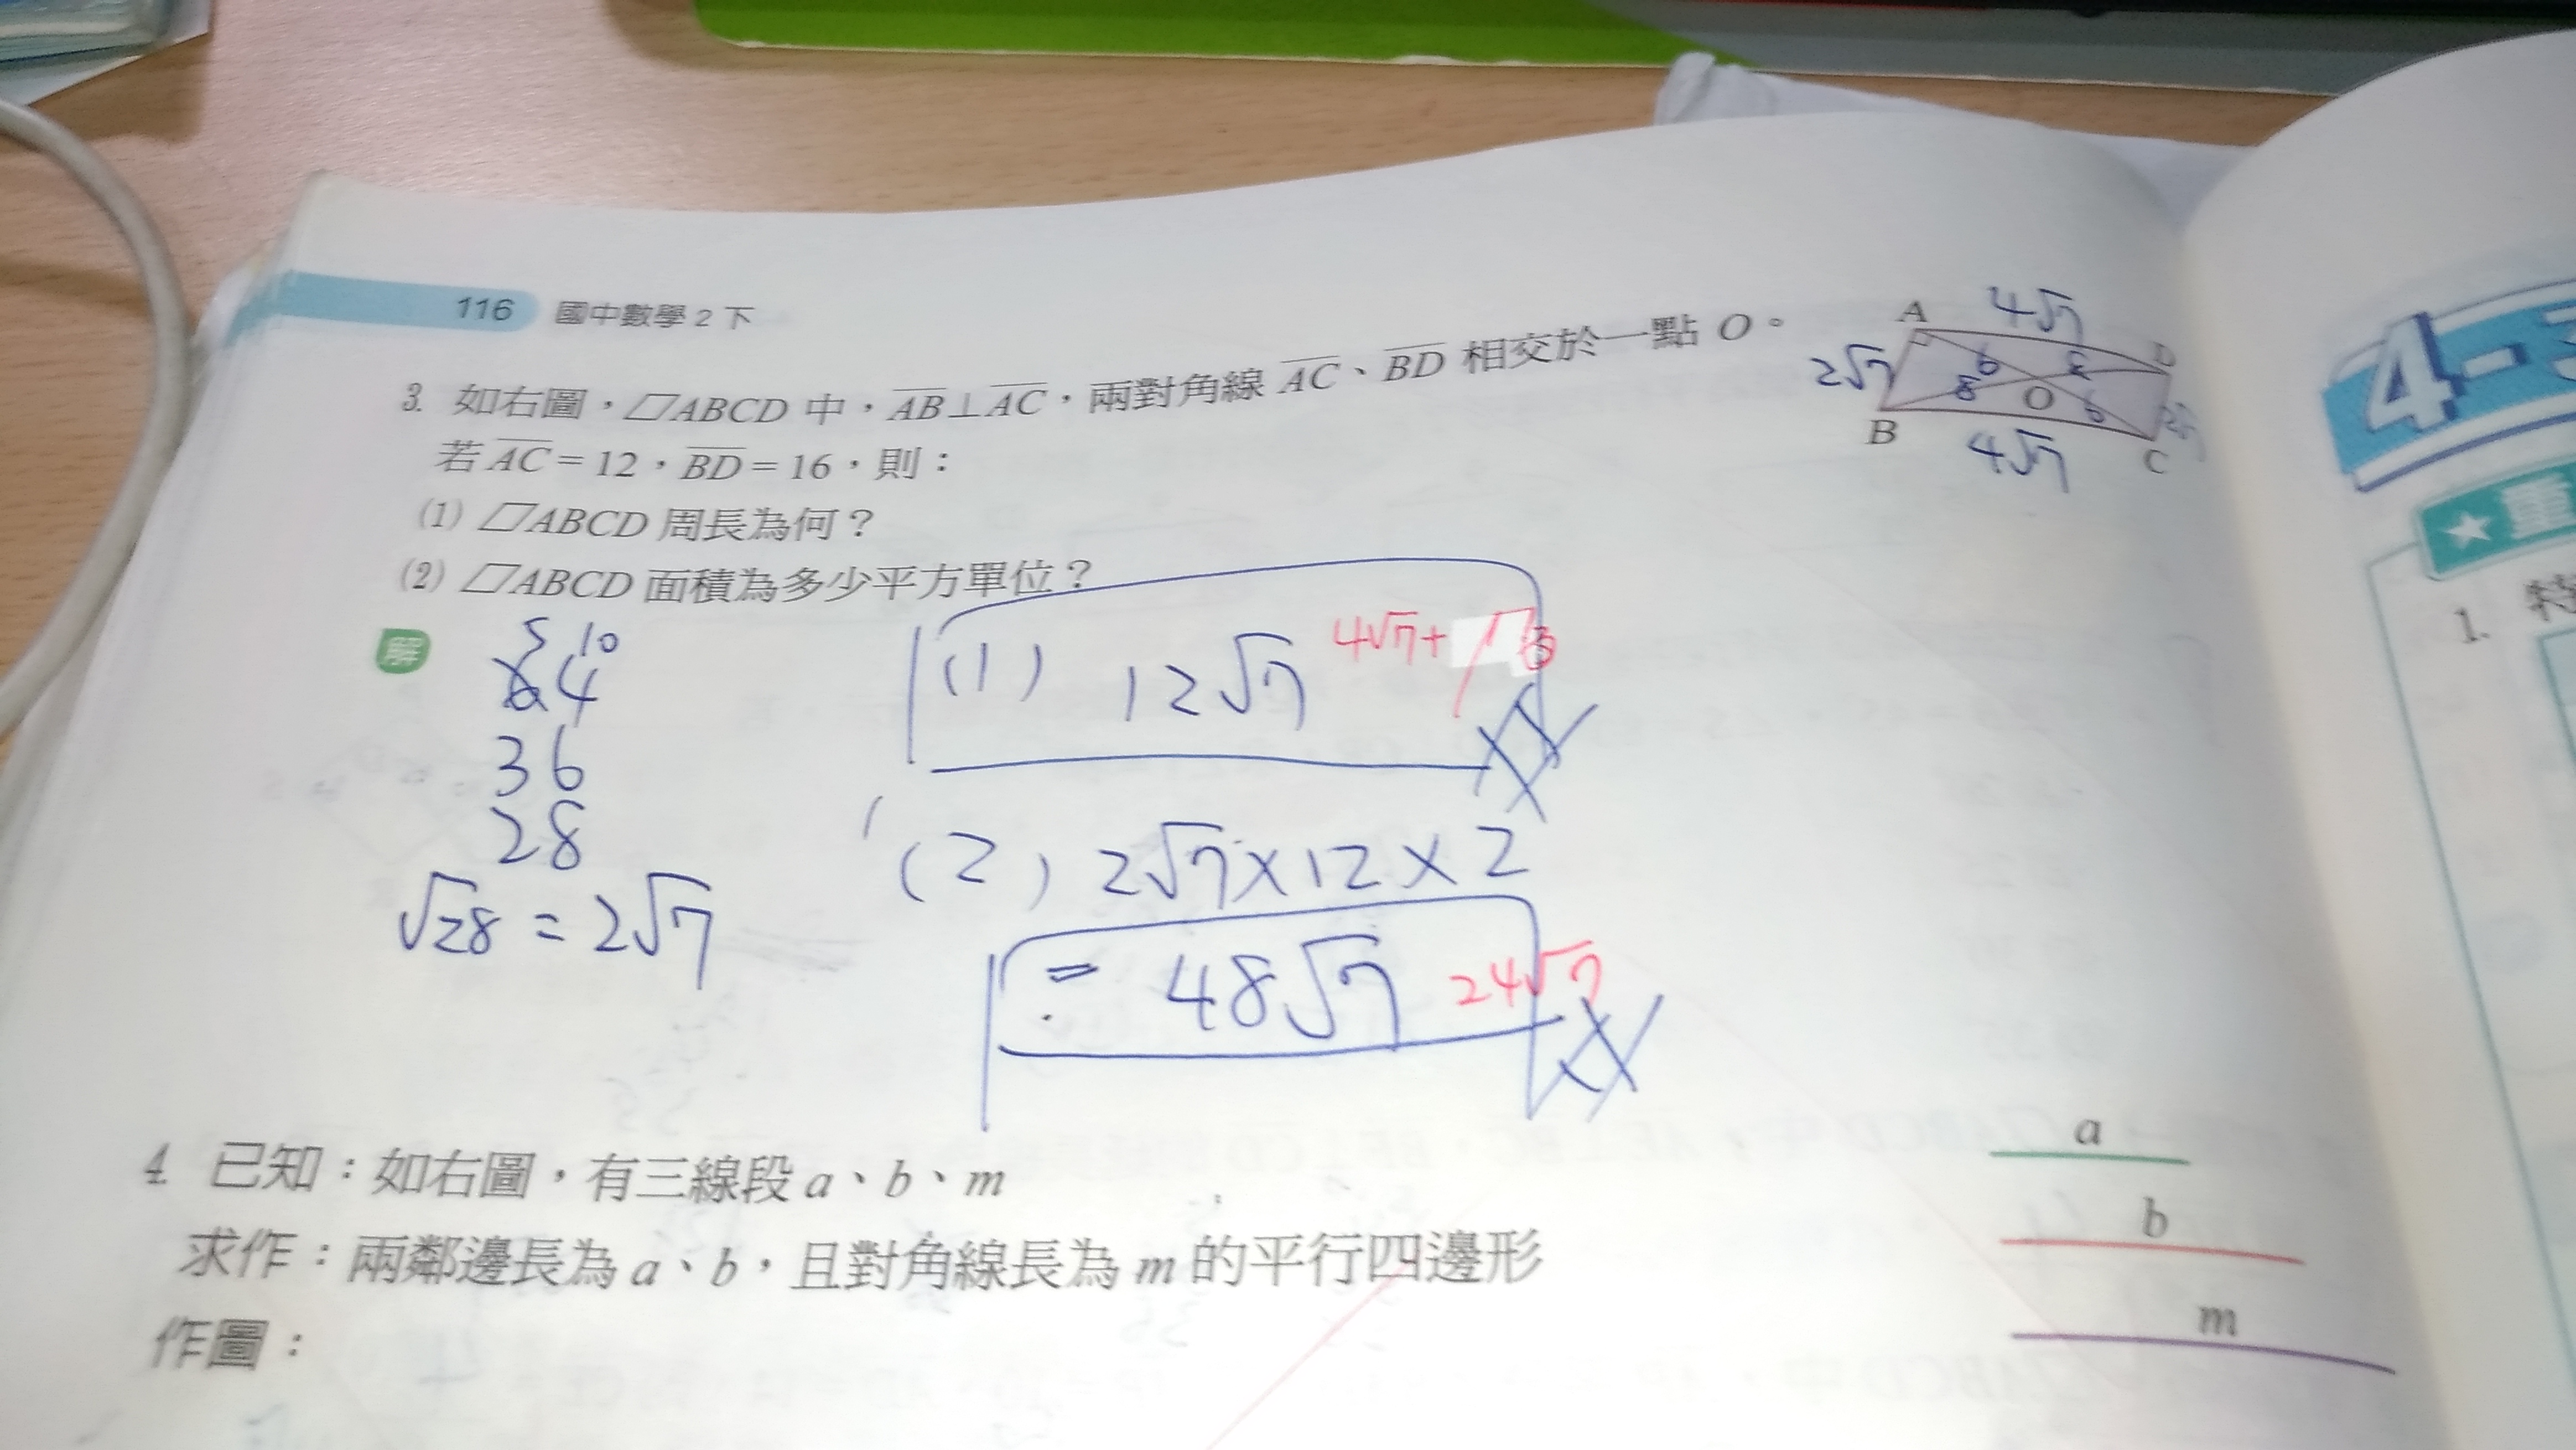 116 國中數學2下
3. 如右圖，▱ABCD 中，AB⊥AC，兩對角線 AC、BD 相交於一點 O。
若 AC = 12，BD = 16，則：
(1) ▱ABCD 周長為何？
(2) ▱ABCD 面積為多少平方單位？
A
4√7
D
2√7
6
8
8
O
6
B
4√7
C
解
5 10
64
36
28
√28 = 2√7
(1) 12√7
4√7+
(2) 2√7×12×2
= 48√7
24√7
4. 已知：如右圖，有三線段 a、b、m
求作：兩鄰邊長為 a、b，且對角線長為 m 的平行四邊形
作圖：
a
b
m
4-
★重
1.